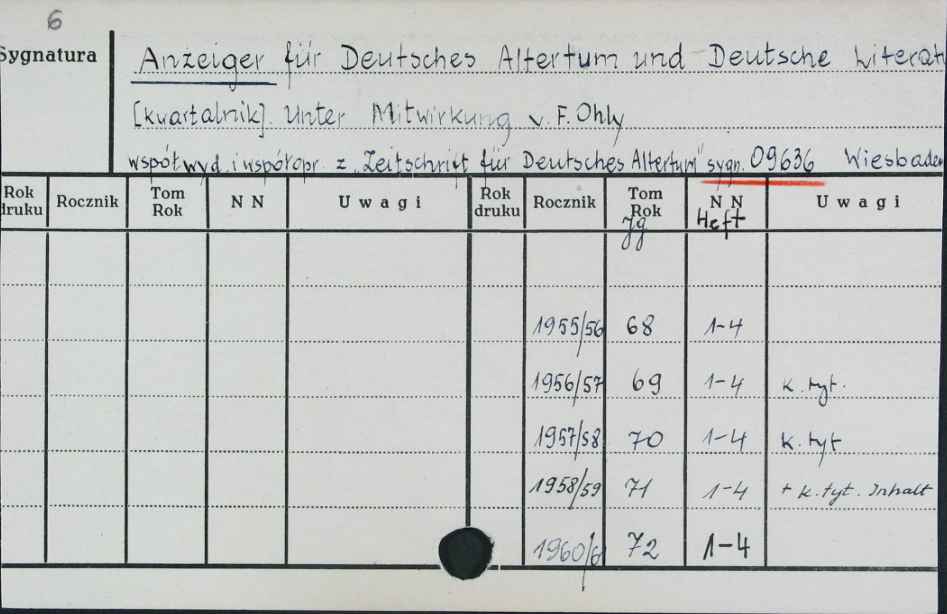 6
Sygnatura
Anzeiger für Deutsches Altertum und Deutsche Literat
[kwartalnik]. Unter Mitwirkung v. F. Ohly
współwyd. i współopr. z „Zeitschrift für Deutsches Altertum" sygn. 09636 Wiesbaden
Rok druku Rocznik Tom Rok NN Uwagi Rok druku Rocznik Tom Rok NN Uwagi
Jg Heft
1955/56 68 1-4
1956/57 69 1-4 k. tyt.
1957/58 70 1-4 k. tyt
1958/59 71 1-4 + k. tyt. Inhalt
1960/61 72 1-4